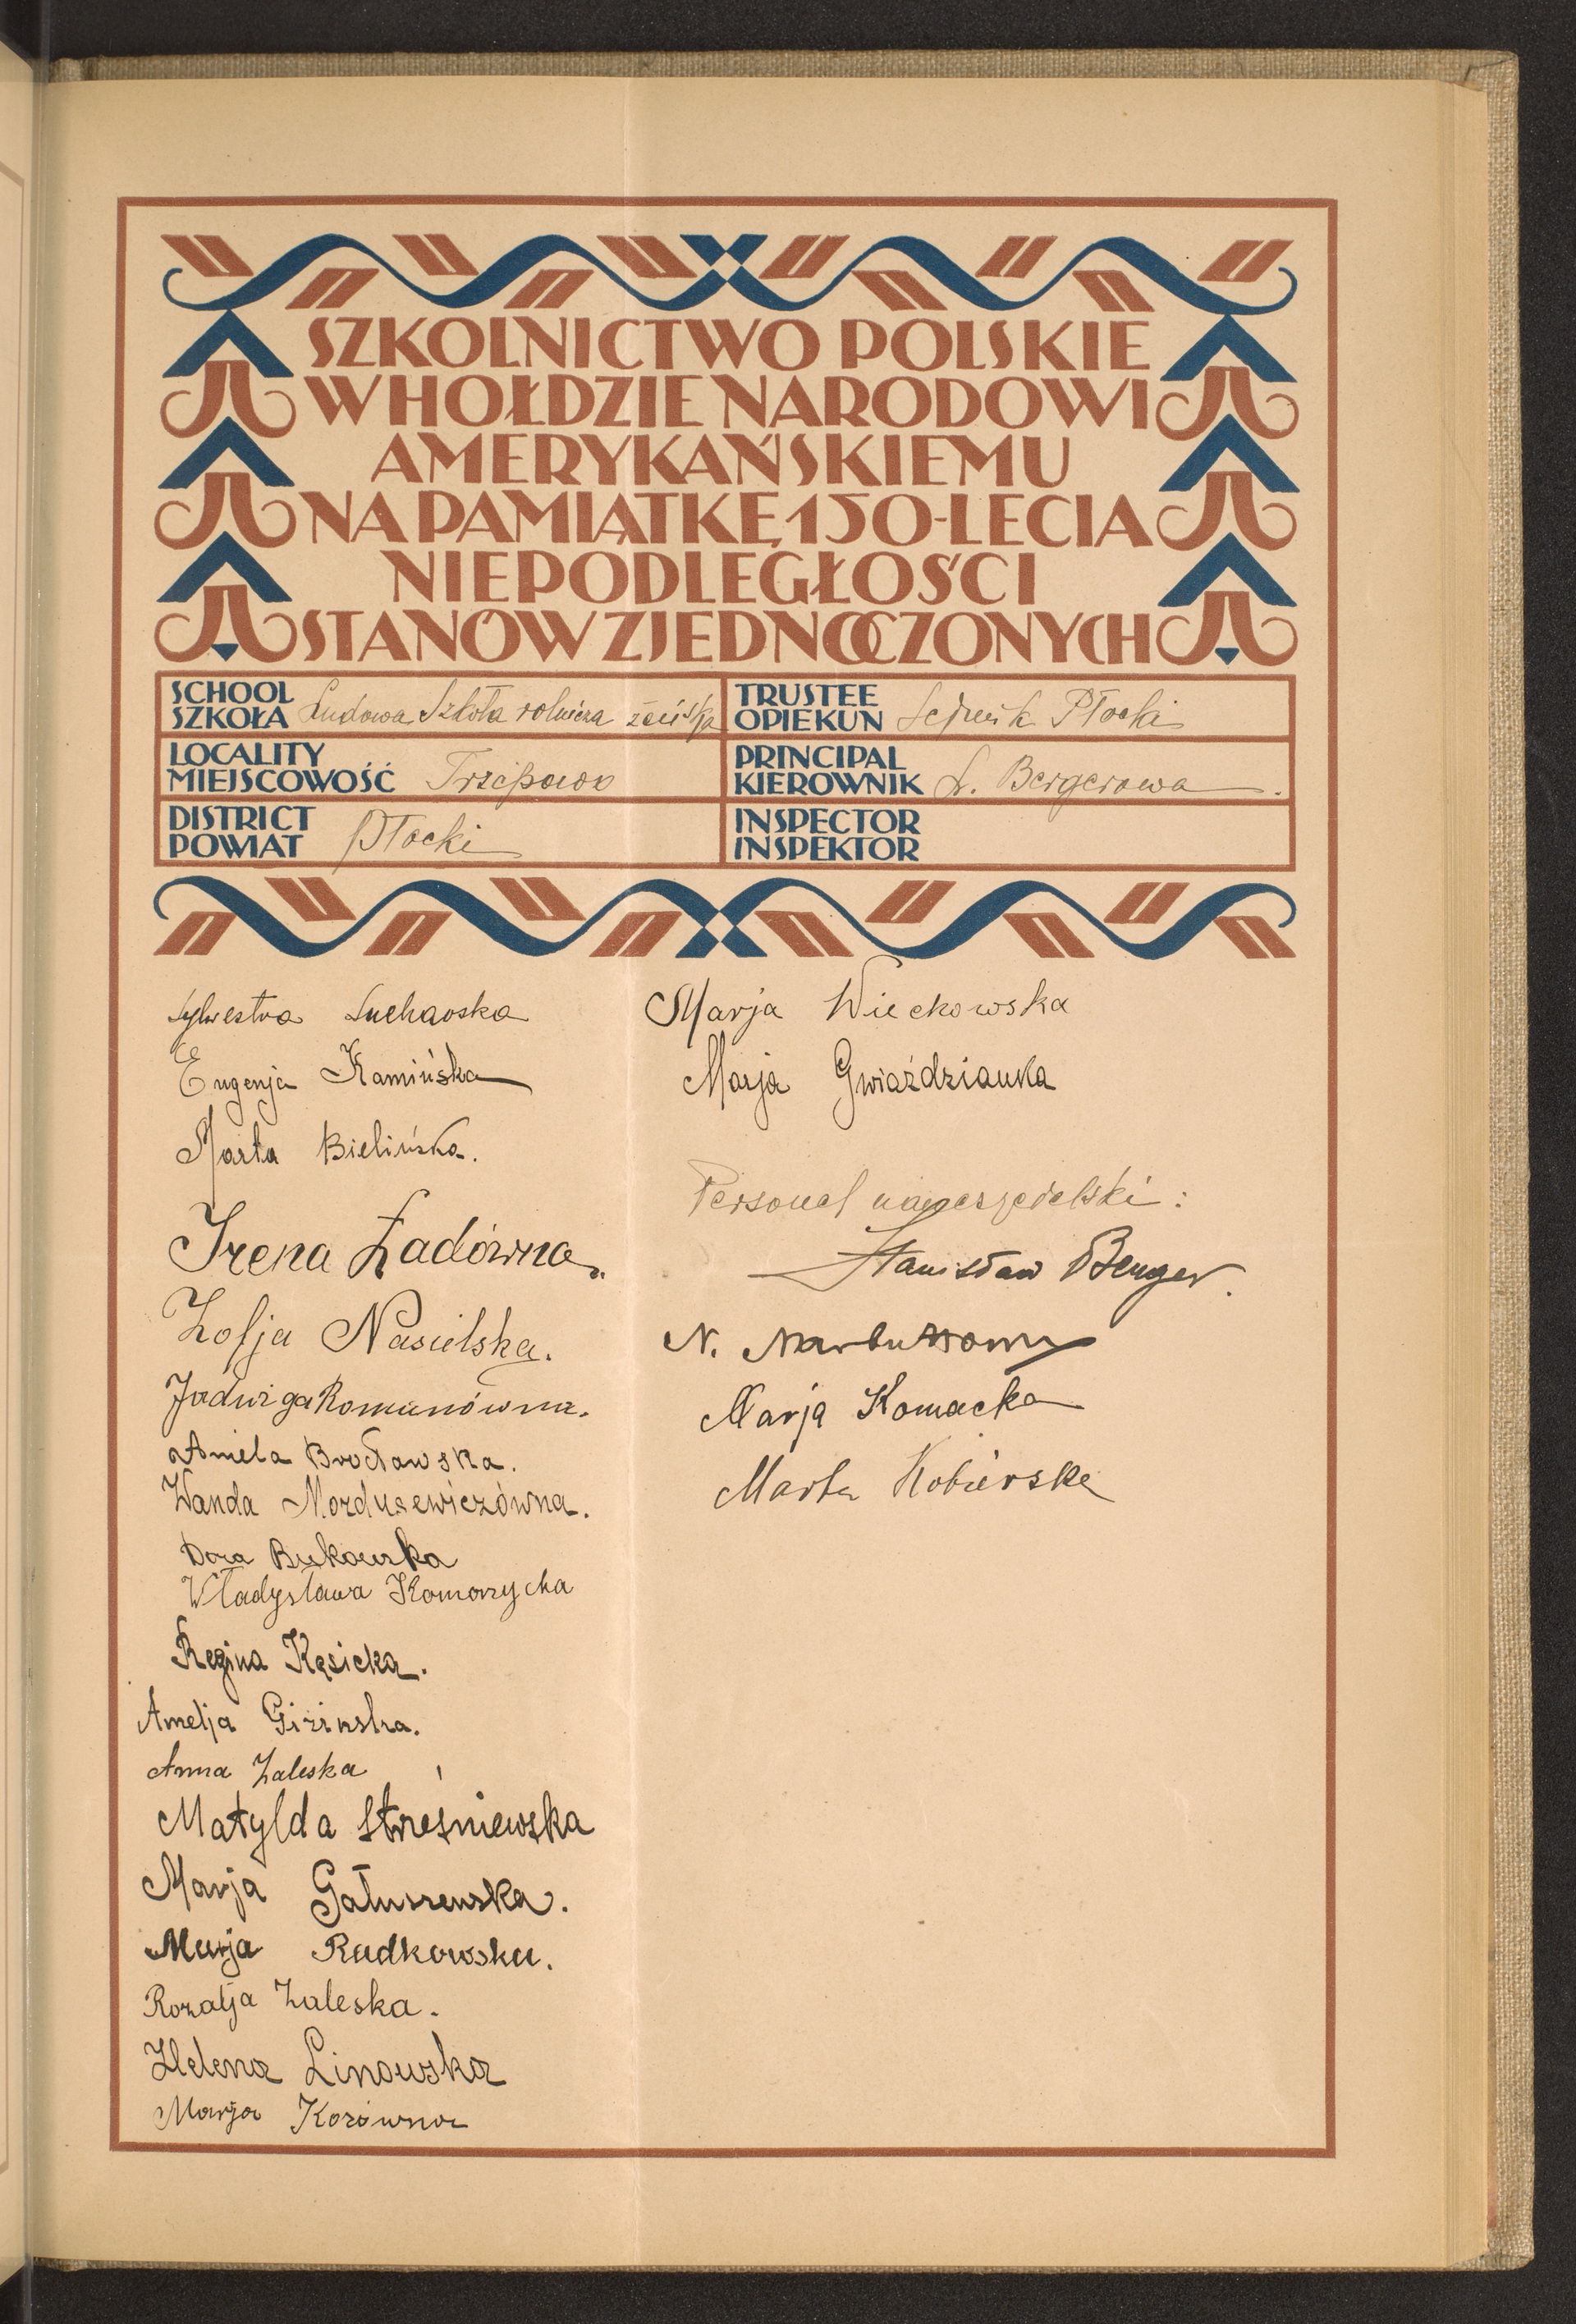 SZKOLNICTWO POLSKIE
W HOŁDZIE NARODOWI
AMERYKAŃSKIEMU
NA PAMIĄTKĘ 150-LECIA
NIEPODLEGŁOŚCI
STANÓW ZJEDNOCZONYCH
SCHOOL
SZKOŁA Ludowa Szkoła rolnicza żeńska
TRUSTEE
OPIEKUN Sejmik Płocki
LOCALITY
MIEJSCOWOŚĆ Trzepowo
PRINCIPAL
KIEROWNIK Bergerowa
DISTRICT
POWIAT Płocki
INSPECTOR
INSPEKTOR
Sylwestra
Eugenja Kamińska
Marta Bielińska.
Irena Ładówna
Zofja Nasielska.
Jadwiga Romanówna.
Aniela Brocławska.
Wanda Mordusewiczówna.
Dora Bukowska
Władysława
Regina Kęsicka.
Amelja Giżinska.
Anna Zaleska
Matylda Streśniewska
Marja Gałuszewska.
Marja Rudkowska.
Rozalja Zaleska.
Helena Linowska
Marja Kozówna
Marja Wieckowska
Marja Gwiaździanka
Personel nauczycielski:
Stanisław Benger.
N.
Marja Komacka
Marta Kobierska